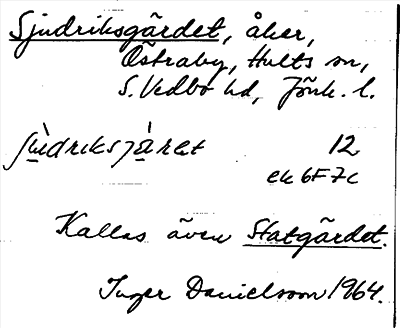 Sjudriksgärdet, åker,
Östraby, Hults sn,
S. Vedbo hd, Jönk. l.
12
ek 6F7c
Kallas även Statgärdet.
Inger Danielsson 1964.